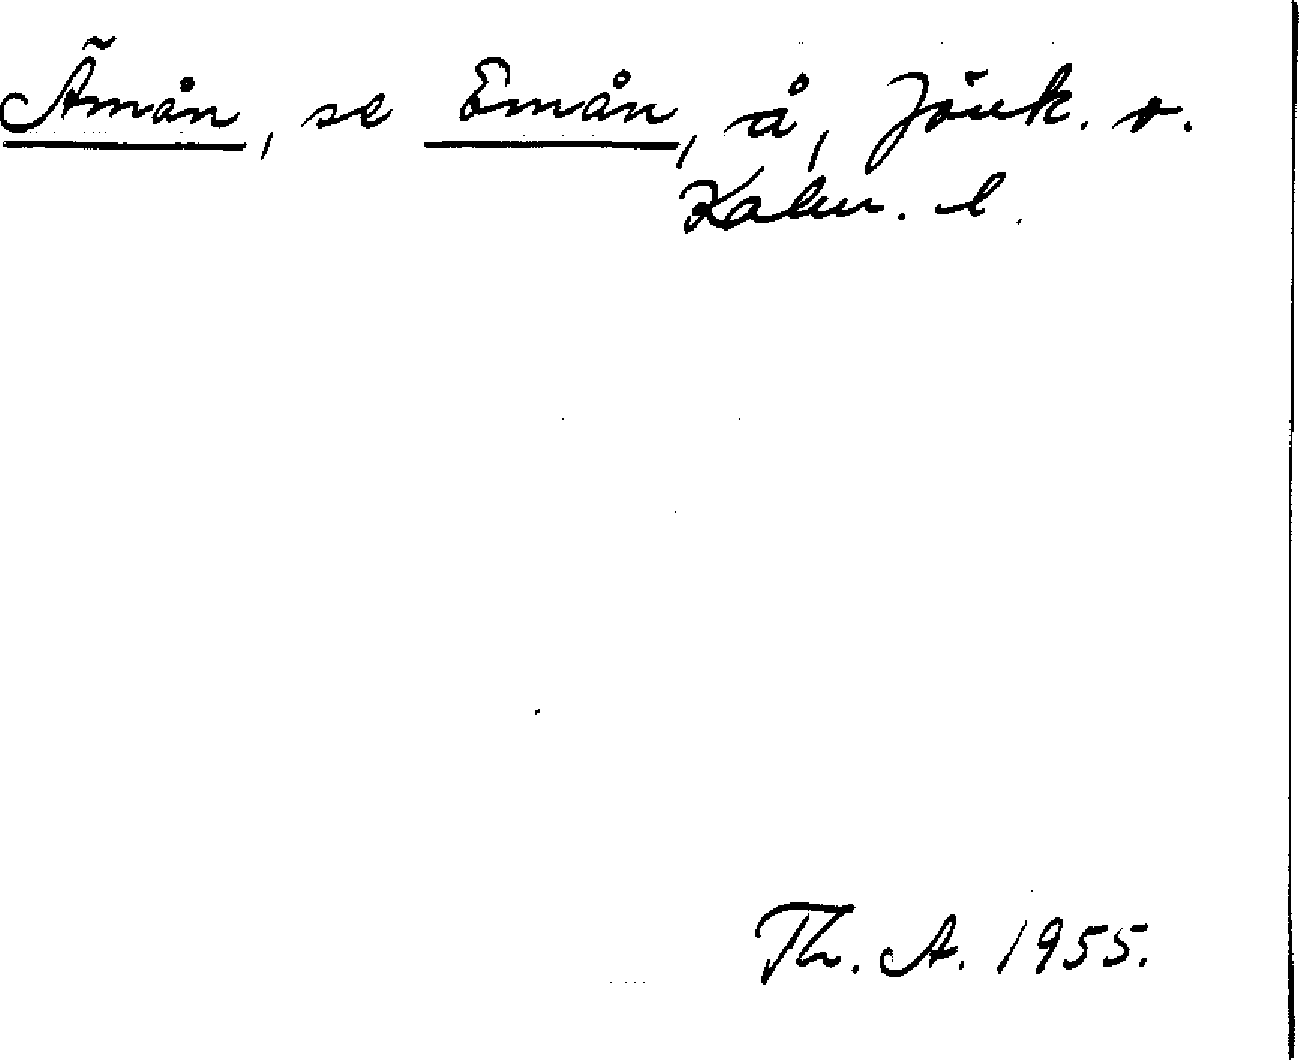 Ämån, se Emån, å, Jönk. o.
Kalm. l.
Th. A. 1955.